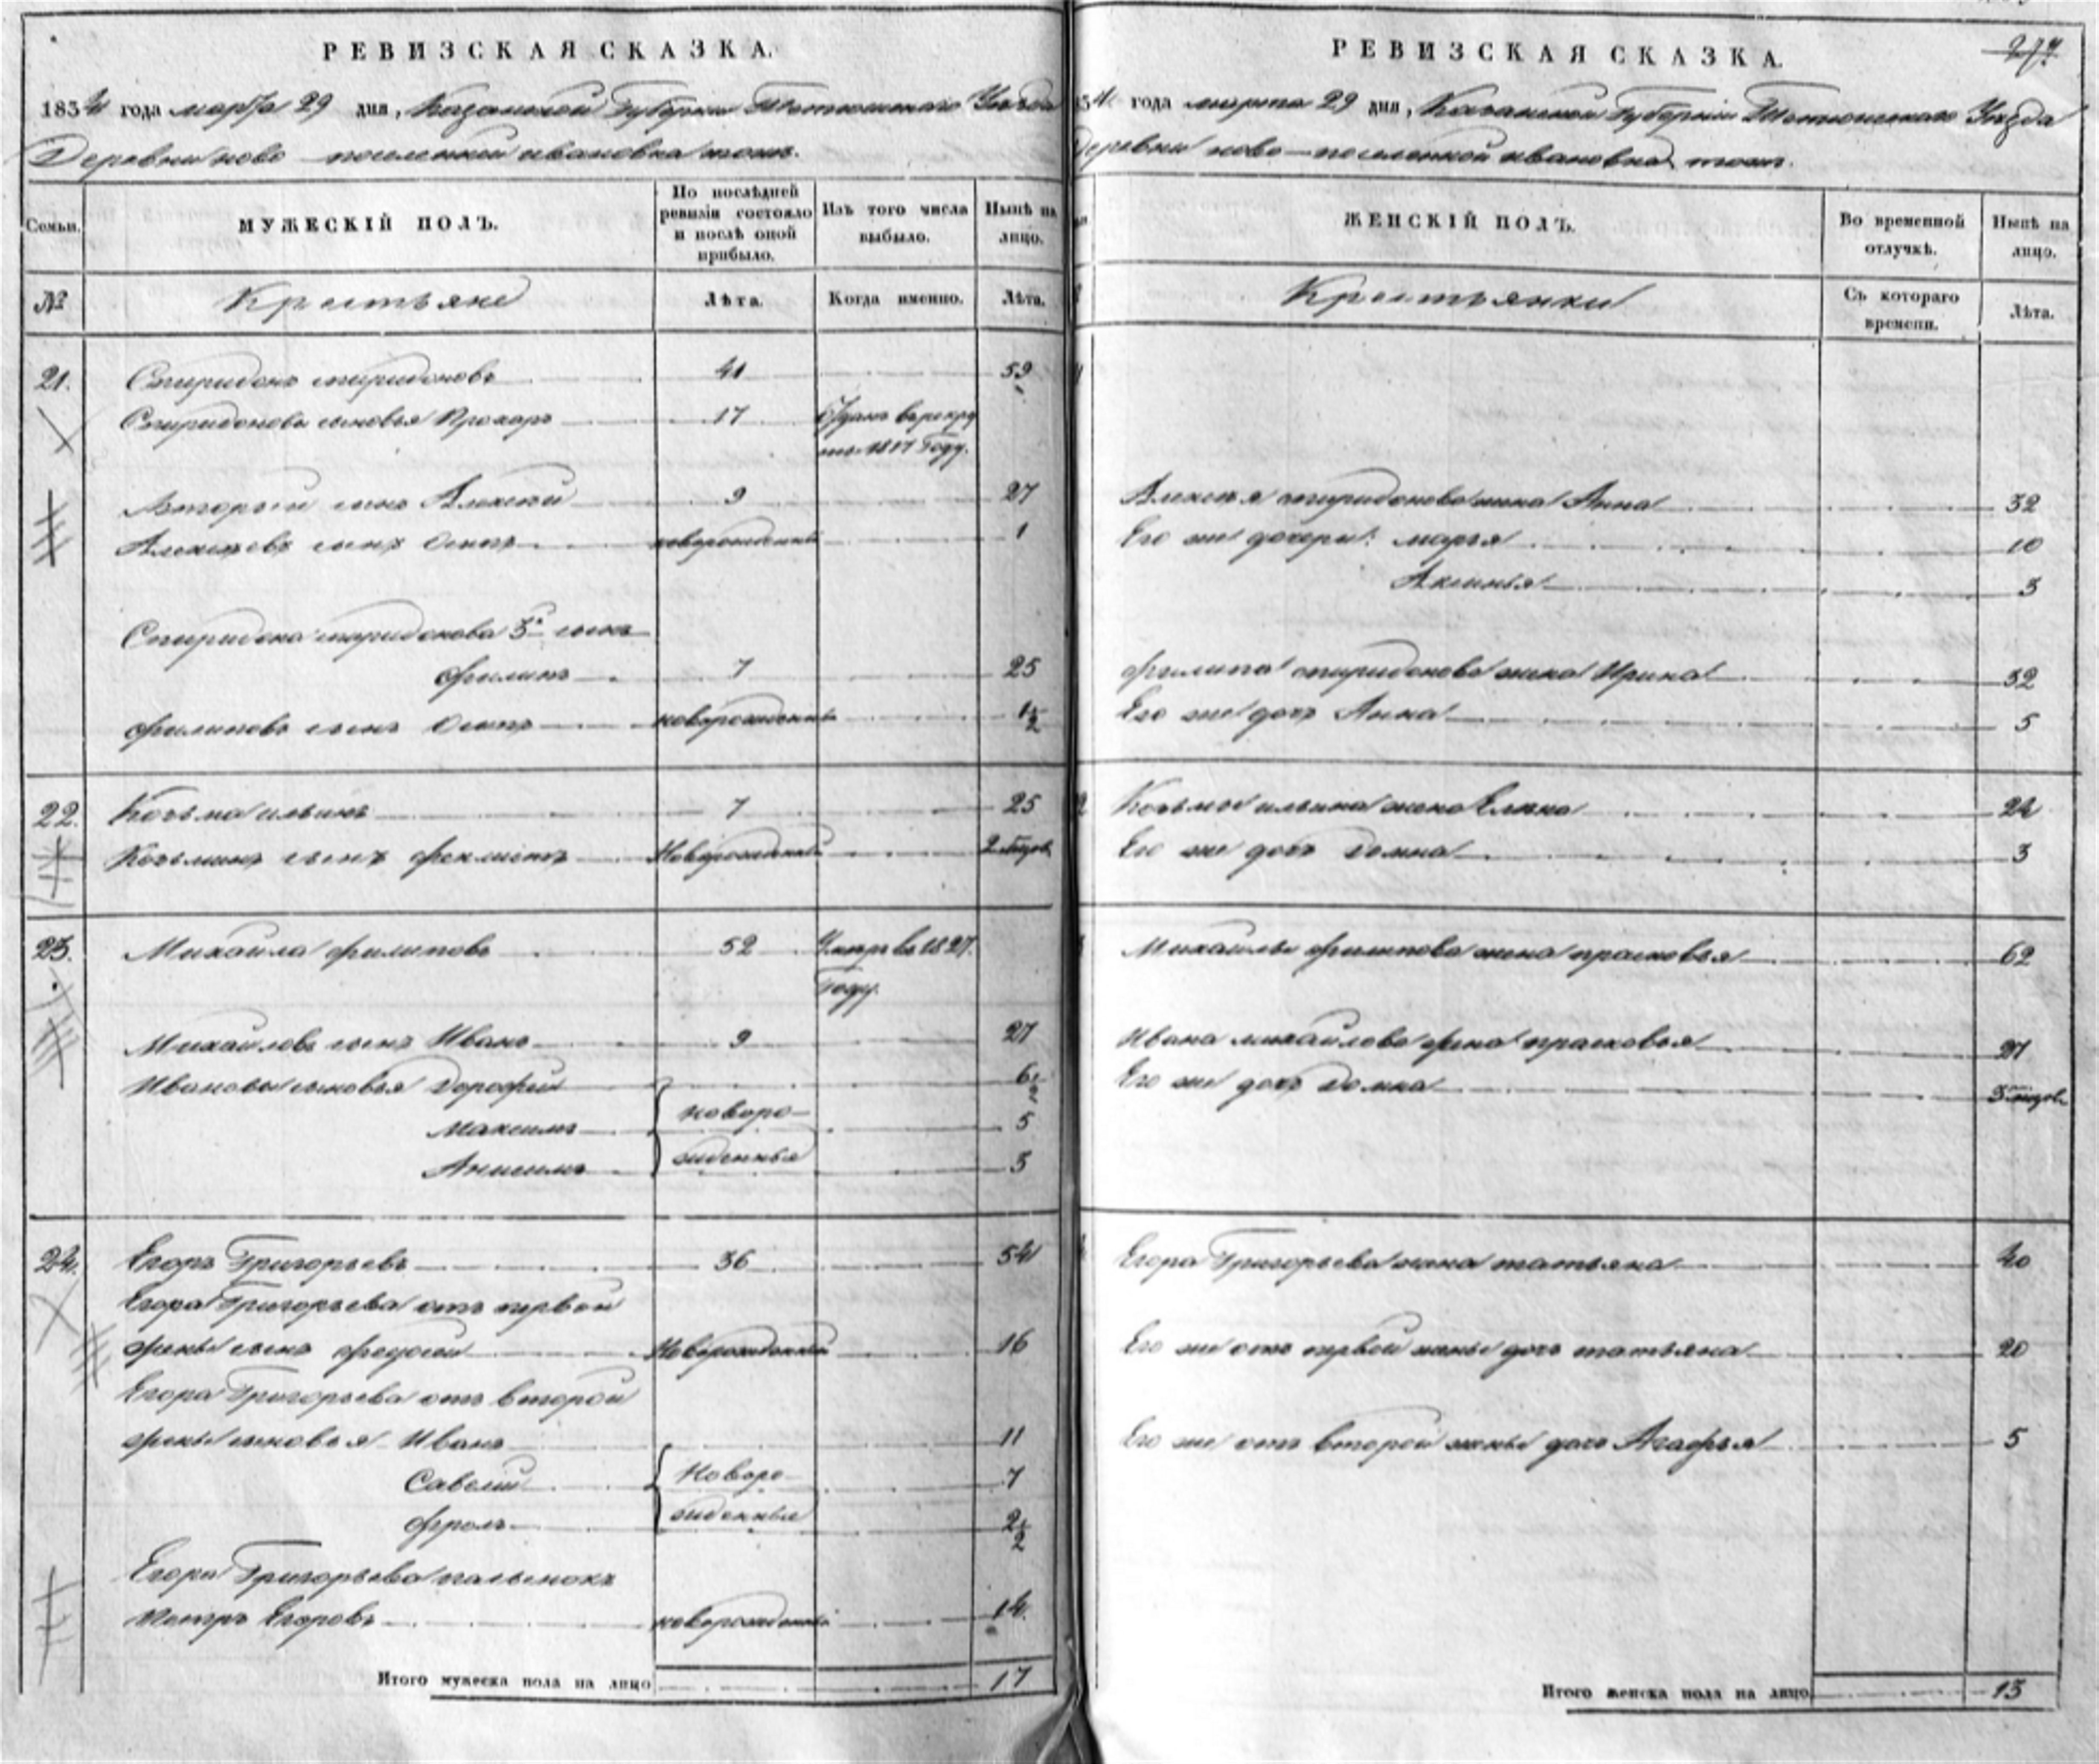 РЕВИЗСКАЯ СКАЗКА.
1834 года марта 29 дня, Казанской Губернии Тетюшского Уезда
Деревни ново-поселенной ивановка тожъ.
Семьи. МУЖЕСКІЙ ПОЛЪ. По послѣдней ревизіи состояло и послѣ оной прибыло. Изъ того числа выбыло. Нынѣ на лицо.
№ Крестьяне Лѣта. Когда именно. Лѣта.
21. Спиридонъ спиридоновъ 41 59
Спиридоновы сыновья Прохоръ 17 Отданъ въ рекру
ты 1817 Году.
Второй сынъ Алексей 9 27
Алексеевъ сынъ Осипъ новорожденный 1
Спиридона спиридонова 3й сынъ
филипъ 7 25
филиповъ сынъ Осипъ новорожденный 1½
22. Козьма ильинъ 7 25
Козьминъ сынъ феклистъ Новорожденный 2 месяц.
23. Михайла филиповъ 52 Умеръ въ 1827.
Году.
Михайловъ сынъ Иванъ 9 27
Ивановы сыновья Дорофей 6½
Максимъ новоро- 5
Анисимъ жденныя 3
24. Егоръ Григорьевъ 36 54
Егора Григорьева отъ первой
жены сынъ федосей Новорожденный 16
Егора Григорьева отъ второй
жены сыновья Иванъ 11
Савелий Новоро- 7
фролъ жденныя 2½
Егора Григорьева пасынокъ
Петръ Егоровъ новорожденный 14.
Итого мужеска пола на лицо 17
РЕВИЗСКАЯ СКАЗКА.
277
34 года марта 29 дня, Казанской Губернии Тетюшского Уезда
Деревни ново-поселенной ивановка тожъ.
ЖЕНСКІЙ ПОЛЪ. Во временной отлучкѣ. Нынѣ на лицо.
Крестьянки Съ котораго времени. Лѣта.
Алексея спиридонова жена Анна 32
Его же дочери: марья 10
Аксинья 3
филипа спиридонова жена Ирина 32
Его же дочь Анна 5
Козьмы ильина жена Елена 24
Его же дочь Домна 3
Михайлы филипова жена прасковья 62
Ивана михайлова жена прасковья 27
Его же дочь Домна 3 месяц.
Егора Григорьева жена татьяна 40
Его же отъ первой жены дочь татьяна 20
Его же отъ второй жены дочь Агафья 5
Итого женска пола на лицо 13